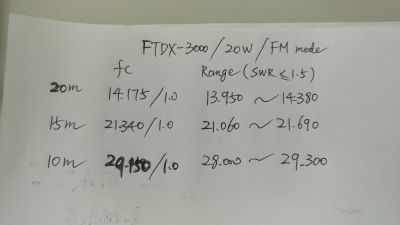 FTDX-3000/20W/FM mode
fc Range (SWR ≤ 1.5)
20m 14.175/1.0 13.950 ~ 14.380
15m 21.340/1.0 21.060 ~ 21.690
10m 29.150/1.0 28.000 ~ 29.300